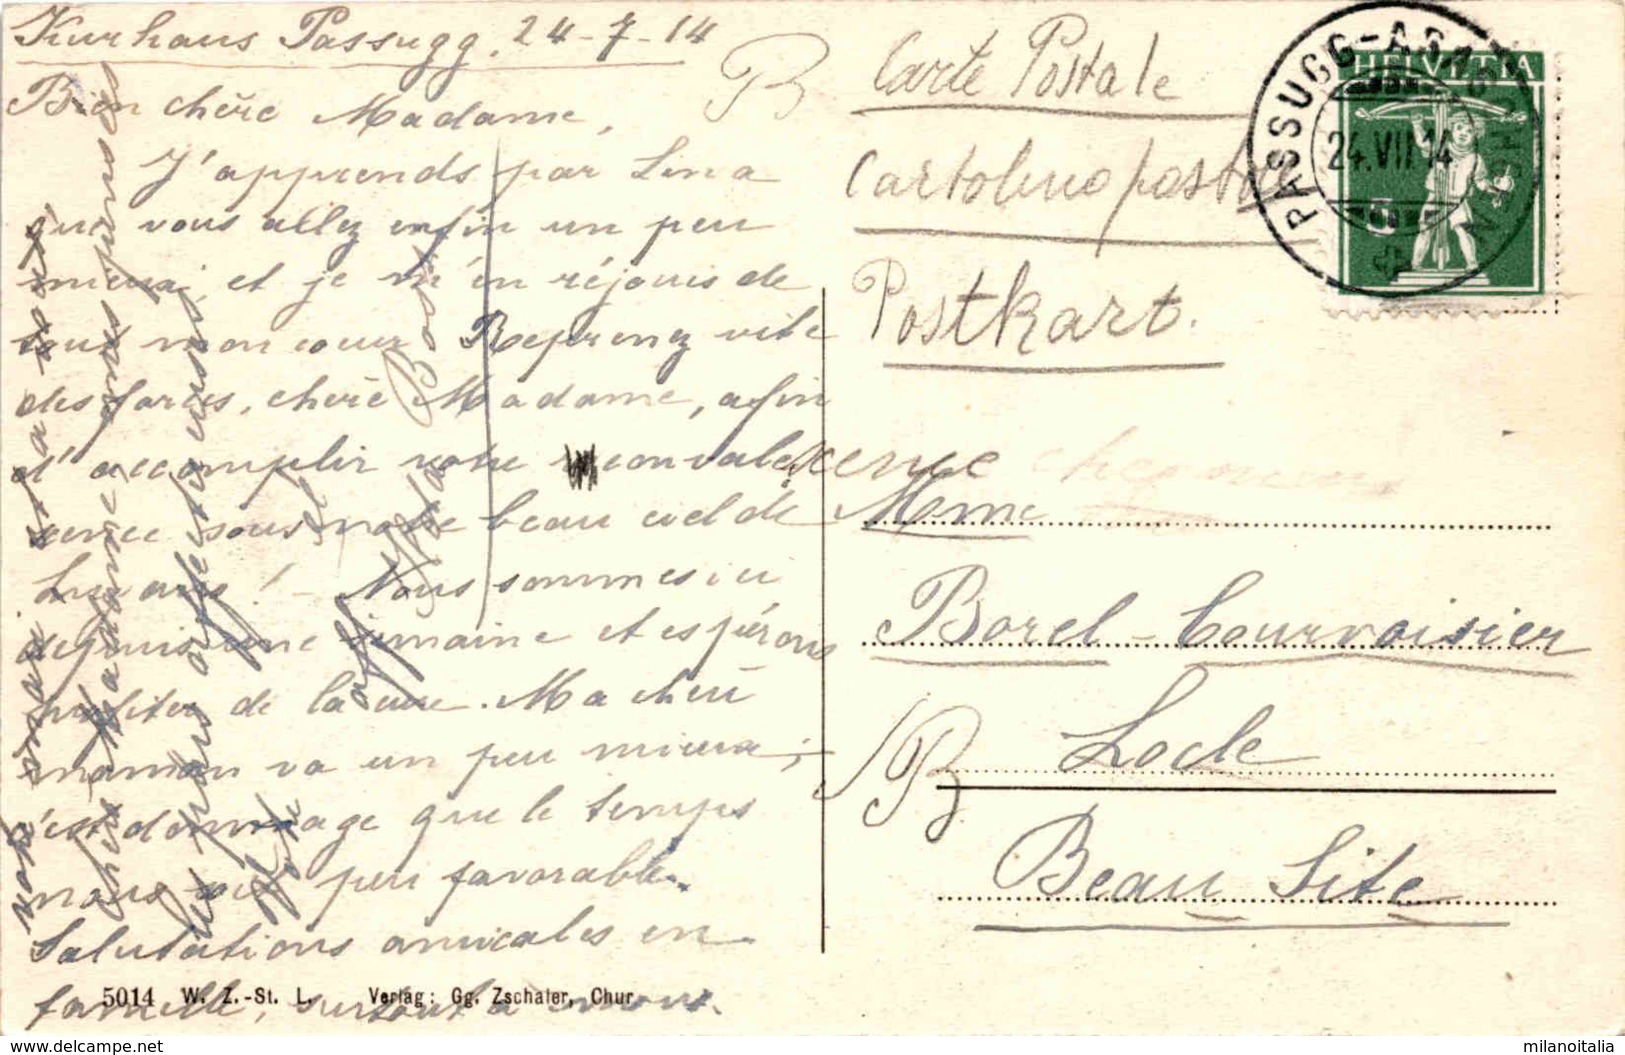 Kurhaus Passugg. 24-7-14
Bien chère Madame,
J'apprends par Lina
que vous allez enfin un peu
mieux, et je m'en réjouis de
tout mon cœur Reprenez vite
des forces, chère Madame, afin
d'accomplir votre convalescence
sous notre beau ciel de
Nous sommes ici
depuis une semaine et espérons
profiter de la cure. Ma chère
maman va un peu mieux;
c'est dommage que le temps
nous soit peu favorable.
Salutations amicales en
famille, surtout à
chère Madame
affectueuses
B
Carte Postale
Cartolina postale
Postkart.
PASSUGG-ARASCHGEN
24.VII.14
HELVETIA
5
Mme
Borel-Courvoisier
Locle
B
Beau Site
5014 W. Z.-St. L. Verlag: Gg. Zschaler, Chur
delcampe.net
milanoitalia